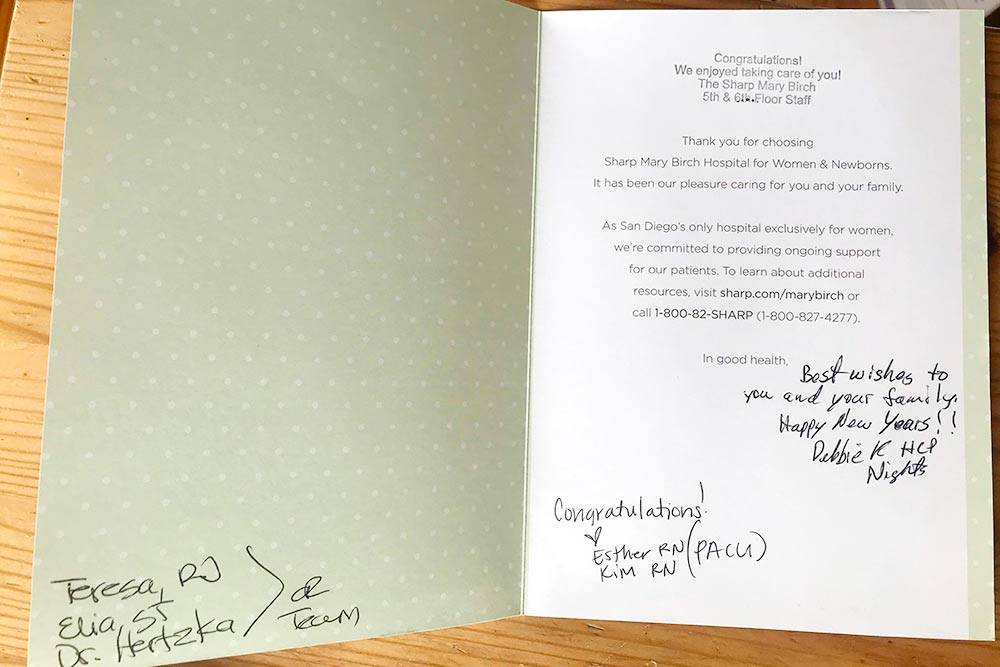 Congratulations!
We enjoyed taking care of you!
The Sharp Mary Birch
5th & 6th Floor Staff
Thank you for choosing
Sharp Mary Birch Hospital for Women & Newborns.
It has been our pleasure caring for you and your family.
As San Diego's only hospital exclusively for women,
we're committed to providing ongoing support
for our patients. To learn about additional
resources, visit sharp.com/marybirch or
call 1-800-82-SHARP (1-800-827-4277).
In good health,
Best wishes to
you and your family.
Happy New Years!!
Debbie K HCP
Nights
Congratulations!
Esther RN (PACU)
Kim RN
Teresa, RN
Elia, ST
Dr. Hertzka
OR
Team